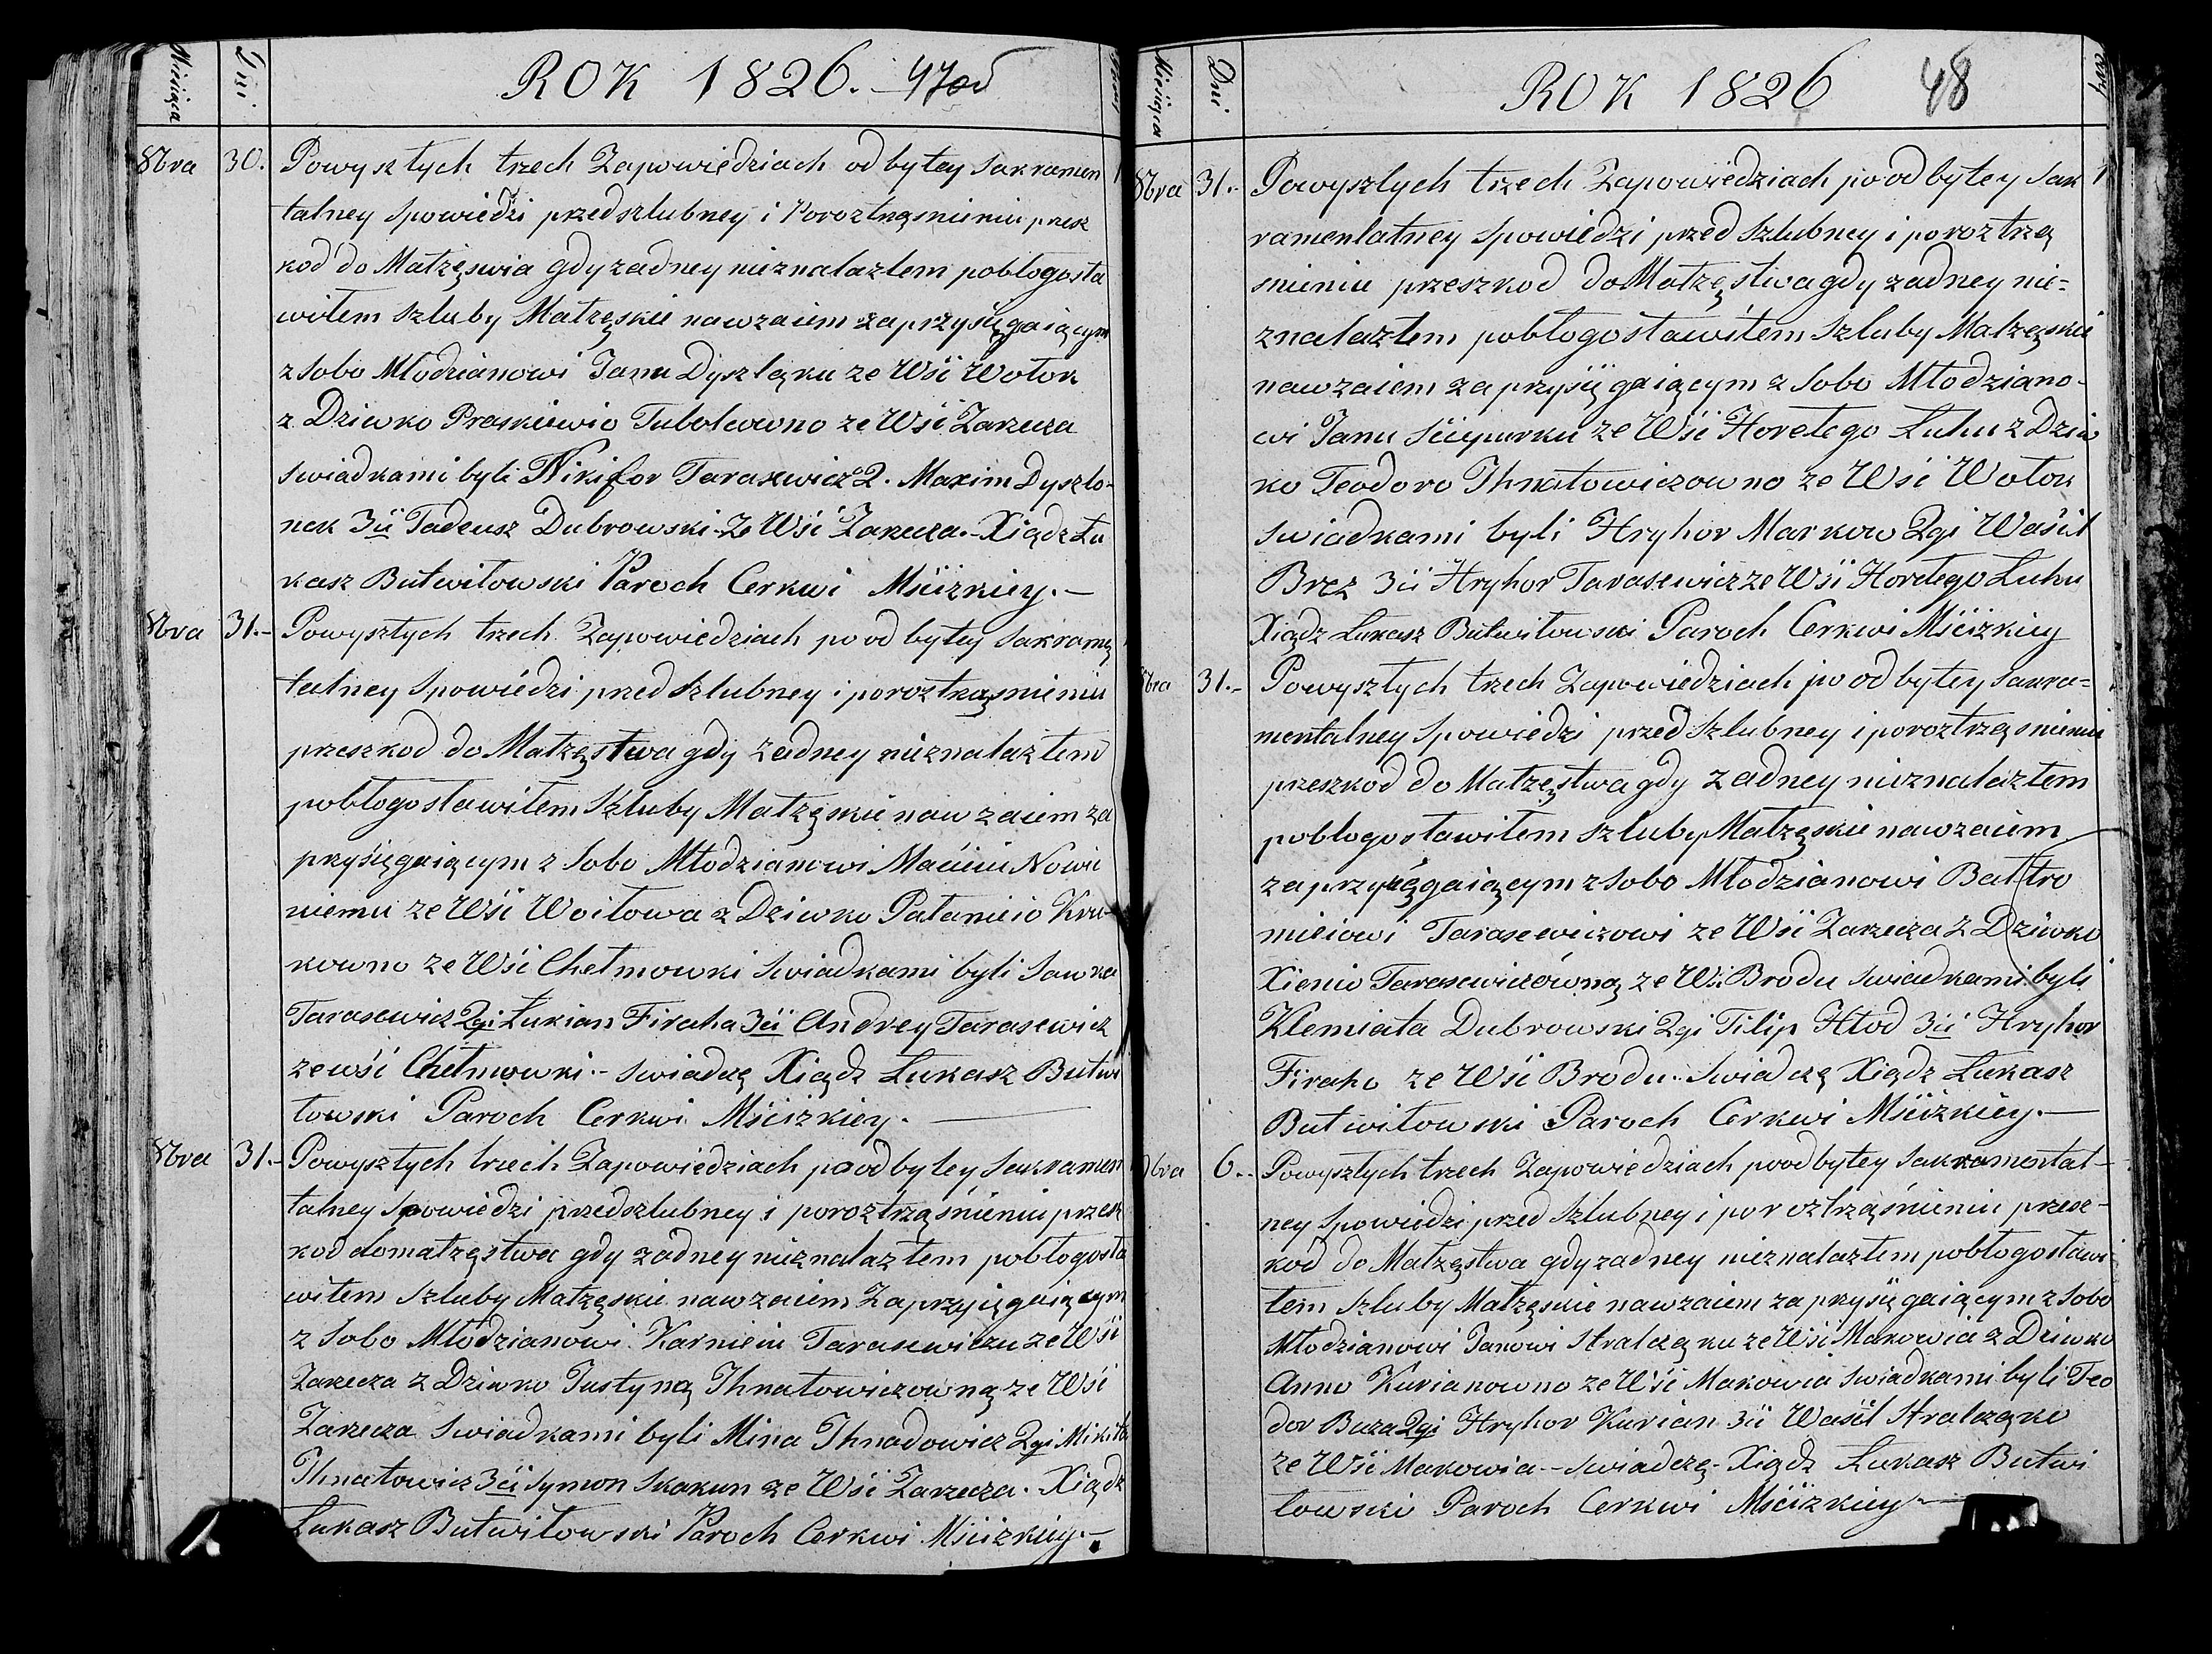 Miesiąca
Dni
ROK 1826. 47об
8bra 30. Powyszłych trzech Zapowiedziach odbytey Sakramen
talney Spowiedzi przedszlubney i Poroztrząsnieniu przesz
kod do Małzęswia gdy zadney nieznalazłem pobłogosła
wiłem szluby Małzęskie nawzaiem zaprzysięgaiącym
z Sobo Młodzianowi Janu Dyszlęku ze Wśi Wołok
z Dziewko Praskiewio Tubolewno ze Wśi Zarzecza
Swiadkami byli Nikifor Tarasewicz 2. Maxim Dyszlo-
nek 3ii Tadeusz Dubrowski ze Wśi Zarzecza.- Xiądz Łu
kasz Butwiłowski Paroch Cerkwi Mściżkiey.-
8bra 31.- Powyszłych trzech Zapowiedziach po odbytey Sakramę
talney Spowiedzi przed szlubney i poroztrząsnieniu
przeszkod do Małzęstwa gdy zadney nieznalazłem
pobłogosławiłem Szluby Małzęskie nawzaiem za
przysięgaiącym z Sobo Młodzianowi Macieiu Nowic
niemu ze Wśi Woitowa z Dziewko Pałanieio Kru-
kowno ze Wśi Chełmowki Swiadkami byli Sawka
Tarasewicz 2gi Łukian Firaha 3ii Andrey Tarasewicz
zewśi Chełmowki.- Swiadczę Xiądz Łukasz Butwi
łowski Paroch Cerkwi Mściżkiey.
8bra 31.- Powyszłych trzech Zapowiedziach po odbytey Sakramen
talney Spowiedzi przedszlubney i poroztrząśnieniu przesz
kod domałzęstwa gdy zadney nieznalazłem pobłogosła
wiłem Szluby Małzęskie nawzaiem Zaprzysięgaiącym
z Sobo Młodzianowi Karnieiu Tarasewiczu ze Wśi
Zarzecza z Dziewko Justyną Ihnatowiczowną ze Wśi
Zarzecza Swiadkami byli Mina Ihnadowicz 2gi Mikita
Ihnatowicz 3ii Symon Skakun ze Wśi Zarzecza. Xiądz
Łukasz Butwiłowski Paroch Cerkwi Mściżkiey.-
Miesiąca
Dni
ROK 1826 48
8bra 31.- Powyszłych trzech Zapowiedziach po odbytey Sak
ramentalney Spowiedzi przed Szlubney i poroztrzą
snieniu przeszkod do Małzęstwa gdy zadney nie=
znalazłem pobłogosławiłem Szluby Małzęskie
nawzaiem zaprzysięgaiącym z Sobo Młodziano-
wi Janu Sciepurku ze Wśi Horełego Łuhu z Dziew
ko Teodoro Ihnatowiczowno ze Wśi Wołok
Swiadkami byli Hryhor Markow 2gi Waśil
Brez 3ii Hryhor Tarasewicz ze Wśi Horełego Łuhu
Xiądz Łukasz Butwiłowski Paroch Cerkwi Mściżkiey
8bra 31.- Powyszłych trzech Zapowiedziach po odbytey Sakra=
mentalney Spowiedzi przed Szlubney i poroztrząsnieniu
przeszkod do Małzęstwa gdy zadney nieznalazłem
pobłogosławiłem szluby Małzęskie nawzaiem
zaprzysięgaiącym z Sobo Młodzianowi Bałtro
mieiowi Tarasewiczowi ze Wśi Zarzecza z Dziewko
Xienio Tarasewiczówną ze Wśi Brodu Swiadkami byli
Klemiata Dubrowski 2gi Filip Hłod 3ii Hryhor
Firaho ze Wśi Brodu. Swiadczę Xiądz Łukasz
Butwiłowski Paroch Cerkwi Mściżkiey.-
9bra 6.. Powyszłych trzech Zapowiedziach poodbytey Sakramental-
ney Spowiedzi przed Szlubney i poroztrząśnieniu przesz-
kod do Małzęstwa gdy zadney nieznalazłem pobłogosławi
łem Szluby Małzęskie nawzaiem zaprzysięgaiącym z Sobo
Młodzianowi Janowi Stralczęku ze Wśi Makowia z Dziewko
Anno Kurianowno ze Wśi Makowia Swiadkami byli Teo
dor Buza 2gi Hryhor Kurian 3ii Waśil Stralczęko
ze Wśi Makowia.- Swiadczę- Xiądz Łukasz Butwi
łowski Paroch Cerkwi Mściżkiey-